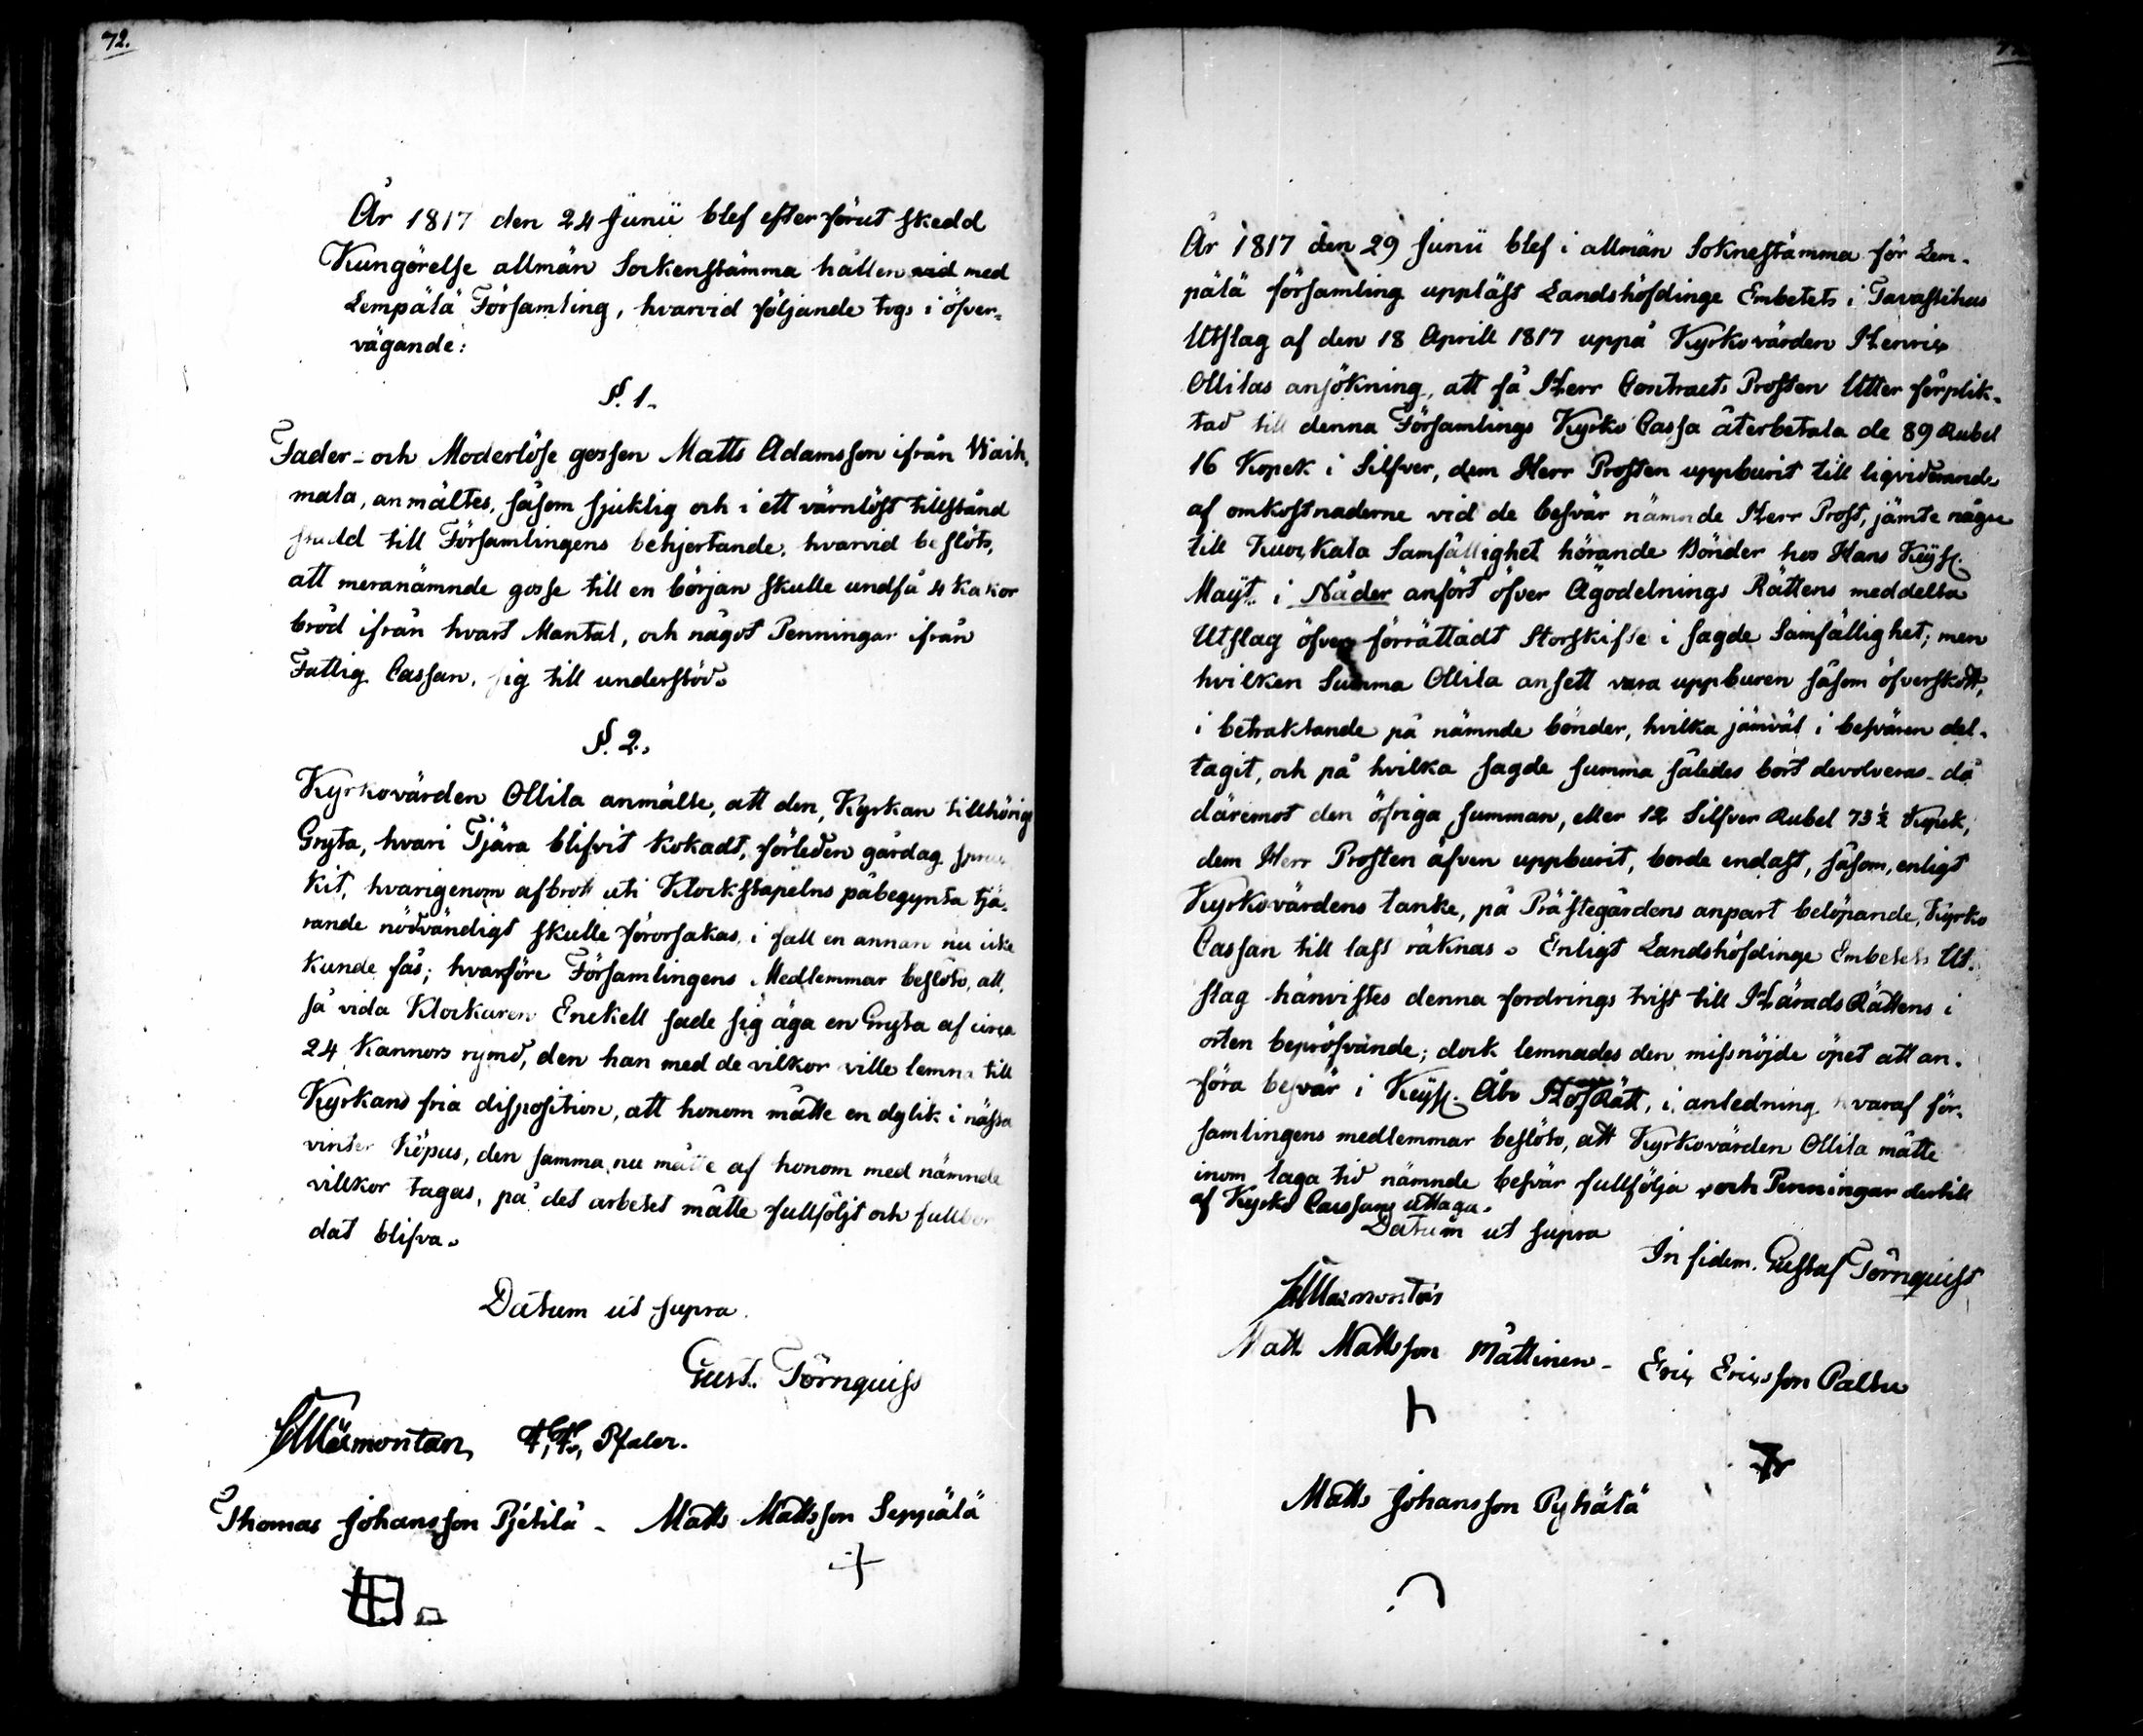 72.
År 1817 den 24 Junii blef efter förut skedd
Kungörelse allmän Sockenstämma hållen vid med
Lempälä Församling, hvarvid följande togs i öfver-
vägande:
§. 1.
Fader- och Moderlöse gossen Matts Adamsson ifrån Waih-
mala, anmältes, såsom sjuklig och i ett värnlöst tillstånd
stadd till Församlingens behjertande, hvarvid beslöts,
att meranämnde gosse till en början skulle undfå 4 kakor
bröd ifrån hvart Mantal, och något Penningar ifrån
Fattig Cassan, sig till understöd.
§. 2.
Kyrkovärden Ollila anmälte, att den, Kyrkan tillhörige
Gryta, hvari Tjära blifvit kokadt, förleden gårdag spruc
kit, hvarigenom afbrott uti Klockstapelns påbegynta tjä-
rande nödvändigt skulle förorsakas, i fall en annan nu icke
kunde fås; hvarföre Församlingens Medlemmar beslöto, att,
så vida Klockaren Enckell sade sig äga en Gryta af circa
24 Kannors rymd, den han med de vilkor ville lemna till
Kyrkans fria disposition, att honom måtte en dylik i nästa
vinter köpas, den samma nu måtte af honom med nämnde
villkor tagas, på det arbetet måtte fullföljt och fullbor
dat blifva.
Datum ut supra.
Gust. Törnquist
Mäxmontan Pfaler.
Thomas Johansson Pjetilä - Matts Mattsson Seppälä
År 1817 den 29 Junii blef i allmän Soknestämma för Lem-
pälä församling uppläst Landshöfdinge Embetets i Tavastehus
Utslag af den 18 Aprill 1817 uppå Kyrkovärden Henric
Ollilas ansökning, att få Herr Contracts Prosten Utter förplik-
tad till denna Församlings Kyrko Cassa återbetala de 89 Rubel
16 Kopek i Silfver, dem Herr Prosten uppburit till liqviderande
af omkostnaderne vid de besvär nämnde Herr Prost, jämte några
till Kuokkala Samfällighet hörande Bönder hos Hans Keijs.
Majt. i Nåder anfört öfver Ägodelnings Rättens meddelta
Utslag öfver förrättadt Storskifte i sagde Samfällighet; men
hvilken Summa Ollila ansett vara uppburen såsom öfverskott,
i betraktande på nämnde bönder, hvilka jämväl i besvären del-
tagit, och på hvilka sagde summa således bort devolveras, då
däremot den öfriga summan, eller 12 Silfver Rubel 73½ Kopek,
dem Herr Prosten äfven uppburit, borde endast, såsom, enligt
Kyrkovärdens tanke, på Prästegårdens anpart belöpande, Kyrko
Cassan till last räknas. Enligt Landshöfdinge Embetets Ut-
slag hänvistes denna fordrings tvist till Härads Rättens i
orten bepröfvande; dock lemnades den missnöjde öpet att an-
föra besvär i Keijs. Åbo HofRätt, i anledning hvaraf för-
samlingens medlemmar beslöto, att Kyrkovärden Ollila måtte
inom laga tid nämnde besvär fullfölja, och Penningar dertill
af Kyrko Cassans uttaga.
Datum ut supra
In fidem. Gustaf Törnquist
Mäxmontan
Matts Mattsson Mattinen - Eric Ericsson Paltu
Matts Johansson Pyhälä